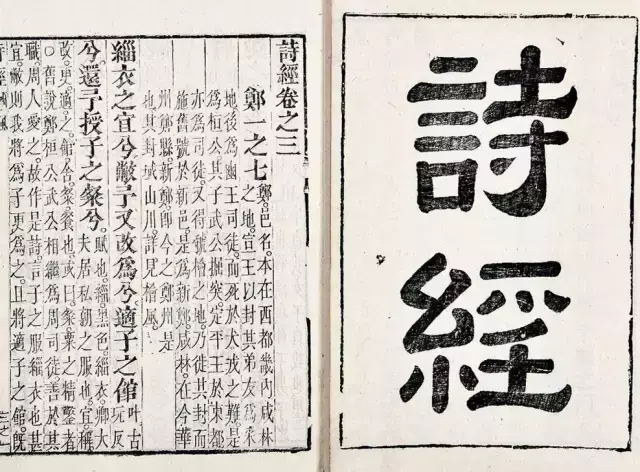 詩經
詩經卷之三
鄭一之七
鄭。邑名。本在西都畿內咸林
之地。宣王以封其弟友為采
地。後為幽王司徒。而死於犬戎之難。是
為桓公。其子武公掘突。定平王於東都。
亦為司徒。又得虢檜之地。乃徙其封。而
施舊號於新邑。是為新鄭。咸林。在今華
州鄭縣。新鄭。即今之鄭州是
也。其封域山川。詳見檜風。
緇衣之宜兮。敝予又改為兮。適子之館
叶古
玩反
兮。還予授子之粲兮。
賦也。緇。黑色。緇衣。卿大
夫居私朝之服也。宜。稱。
改。更。適。之。館。舍。粲。餐也。或曰。粲。粟之精鑿者。
○舊說。鄭桓公武公。相繼為周司徒。善於其
職。周人愛之。故作是詩。言子之服緇衣也。甚
宜。敝。則我將為子更為之。且將適子之館。既